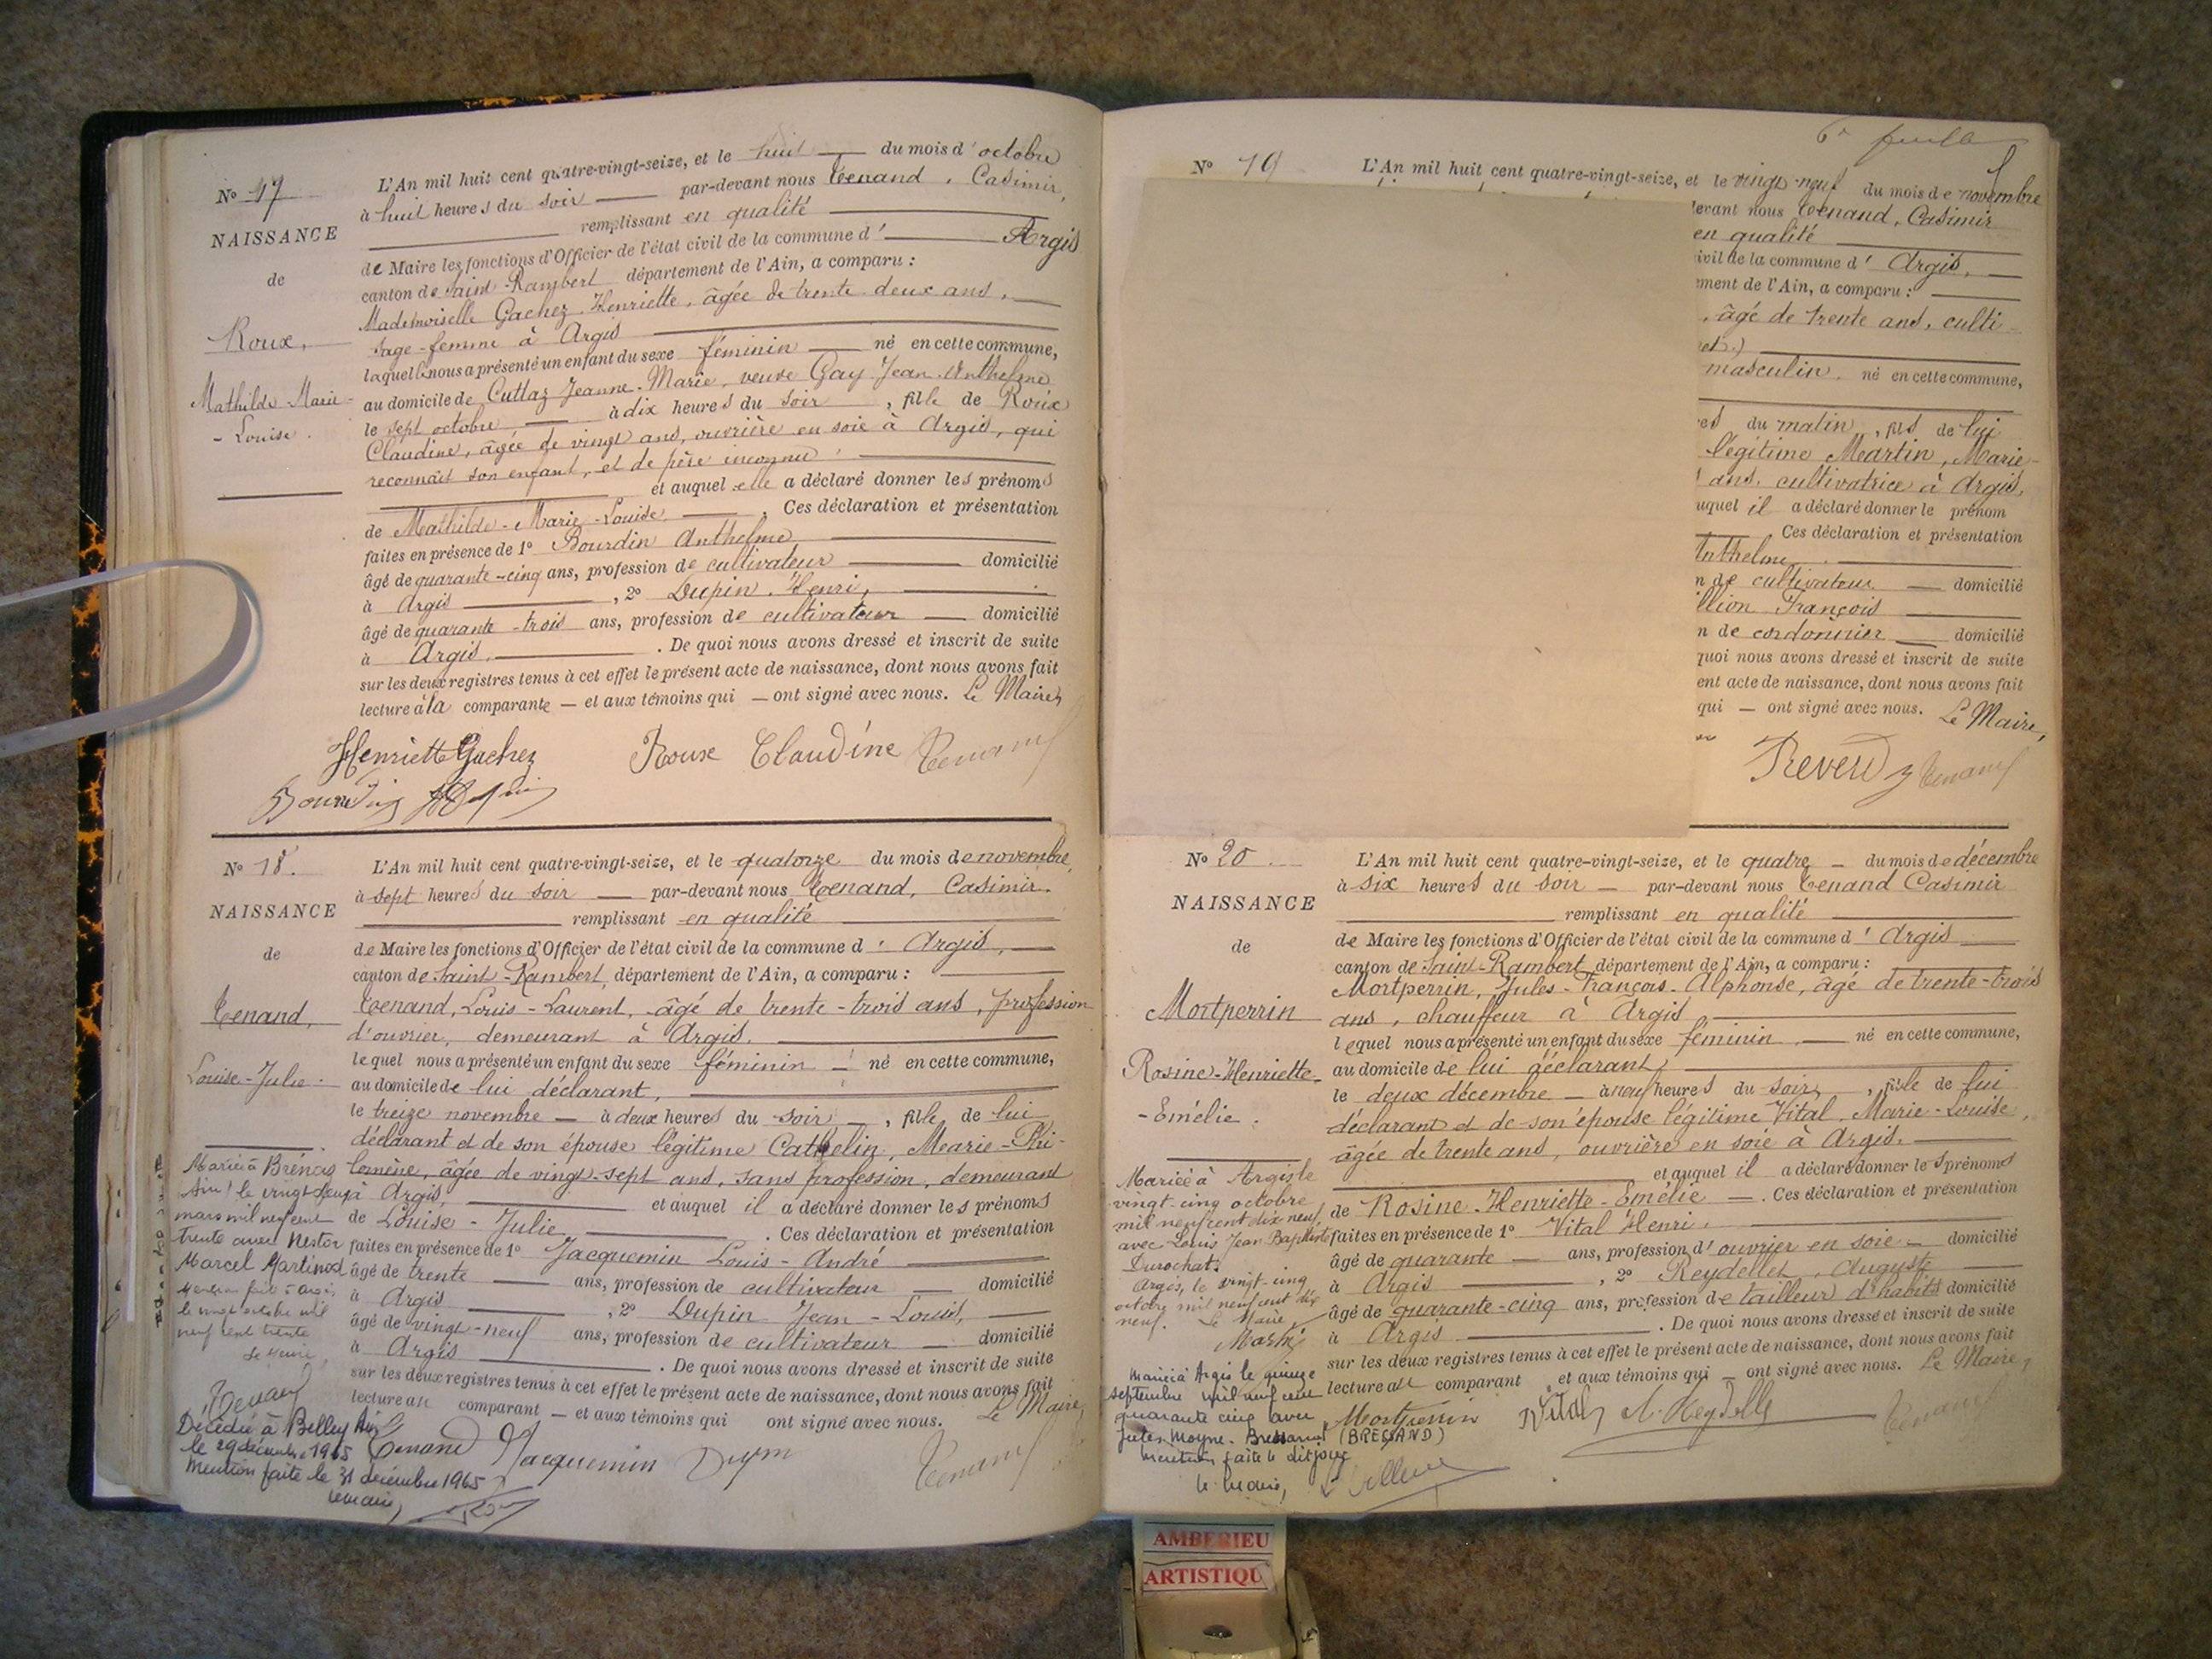 N° 17
NAISSANCE
de
Roux,
Mathilde-Marie-
-Louise.
L'An mil huit cent quatre-vingt-seize, et le huit du mois d'octobre
à huit heures du soir par-devant nous Tenand, Casimir,
remplissant en qualité
de Maire les fonctions d'Officier de l'état civil de la commune d' Argis
canton de Saint-Rambert département de l'Ain, a comparu :
Mademoiselle Gachez Henriette, âgée de trente deux ans,
sage-femme à Argis
laquelle nous a présenté un enfant du sexe féminin né en cette commune,
au domicile de Cuttaz Jeanne-Marie, veuve Gay Jean-Anthelme
le sept octobre, à dix heures du soir, fille de Roux
Claudine, âgée de vingt ans, ouvrière en soie à Argis, qui
reconnait son enfant, et de père inconnu.
et auquel elle a déclaré donner les prénoms
de Mathilde-Marie-Louise. Ces déclaration et présentation
faites en présence de 1° Bourdin Anthelme
âgé de quarante-cinq ans, profession de cultivateur domicilié
à Argis, 2° Dupin Henri,
âgé de quarante-trois ans, profession de cultivateur domicilié
à Argis. De quoi nous avons dressé et inscrit de suite
sur les deux registres tenus à cet effet le présent acte de naissance, dont nous avons fait
lecture à la comparante et aux témoins qui ont signé avec nous. Le Maire,
Henriette Gachez Roux Claudine Tenand
Bourdin
N° 18.
NAISSANCE
de
Tenand,
Louise-Julie.
L'An mil huit cent quatre-vingt-seize, et le quatorze du mois de novembre,
à sept heures du soir par-devant nous Tenand, Casimir.
remplissant en qualité
de Maire les fonctions d'Officier de l'état civil de la commune d' Argis,
canton de Saint-Rambert, département de l'Ain, a comparu :
Tenand, Louis-Laurent, âgé de trente-trois ans, profession
d'ouvrier, demeurant à Argis.
lequel nous a présenté un enfant du sexe féminin né en cette commune,
au domicile de lui déclarant,
le treize novembre à deux heures du soir, fille de lui
déclarant et de son épouse légitime Cathelin, Marie-Phi-
lomène, âgée de vingt-sept ans, sans profession, demeurant
à Argis et auquel il a déclaré donner les prénoms
de Louise-Julie. Ces déclaration et présentation
faites en présence de 1° Jacquemin Louis-André
âgé de trente ans, profession de cultivateur domicilié
à Argis, 2° Dupin Jean-Louis,
âgé de vingt-neuf ans, profession de cultivateur domicilié
à Argis. De quoi nous avons dressé et inscrit de suite
sur les deux registres tenus à cet effet le présent acte de naissance, dont nous avons fait
lecture au comparant et aux témoins qui ont signé avec nous. Le Maire,
Tenand Jacquemin Tenand
Mariée à
Ain le vingt
mars mil neuf cent
trente avec Nestor
Marcel Martinod
Mention faite à Argis
le vingt octobre mil
neuf cent trente
Le Maire,
Tenand
Décédée à Belley Ain
le 29 décembre 1965
Mention faite le 31 décembre 1965
Le Maire,
6e feuille
N° 19
L'An mil huit cent quatre-vingt-seize, et le vingt-neuf du mois de novembre
devant nous Tenand, Casimir
en qualité
ivil de la commune d' Argis,
ment de l'Ain, a comparu :
, âgé de trente ans, culti-
masculin, né en cette commune,
es du matin, fils de lui
légitime Martin, Marie-
ans, cultivatrice à Argis,
uquel il a déclaré donner le prénom
Ces déclaration et présentation
Anthelme
n de cultivateur domicilié
llion François
n de cordonnier domicilié
quoi nous avons dressé et inscrit de suite
ent acte de naissance, dont nous avons fait
qui ont signé avec nous. Le Maire,
Tenand
N° 20.
NAISSANCE
de
Mortperrin
Rosine-Henriette-
-Emélie.
L'An mil huit cent quatre-vingt-seize, et le quatre du mois de décembre
à six heures du soir par-devant nous Tenand Casimir
remplissant en qualité
de Maire les fonctions d'Officier de l'état civil de la commune d' Argis
canton de Saint-Rambert département de l'Ain, a comparu :
Mortperrin, Jules-François-Alphonse, âgé de trente-trois
ans, chauffeur à Argis
lequel nous a présenté un enfant du sexe féminin né en cette commune,
au domicile de lui déclarant,
le deux décembre à neuf heures du soir, fille de lui
déclarant et de son épouse légitime Vital, Marie-Louise,
âgée de trente ans, ouvrière en soie à Argis.
et auquel il a déclaré donner les prénoms
de Rosine-Henriette-Emélie. Ces déclaration et présentation
faites en présence de 1° Vital Henri,
âgé de quarante ans, profession d'ouvrier en soie domicilié
à Argis, 2° Reydellet, Auguste
âgé de quarante-cinq ans, profession de tailleur d'habits domicilié
à Argis. De quoi nous avons dressé et inscrit de suite
sur les deux registres tenus à cet effet le présent acte de naissance, dont nous avons fait
lecture au comparant et aux témoins qui ont signé avec nous. Le Maire,
Mortperrin Vital A. Reydellet Tenand
Mariée à Argis le
vingt-cinq octobre
mil neuf cent dix-neuf
avec Louis Jean Baptiste
Durochat.
Argis, le vingt-cinq
octobre mil neuf cent dix
neuf. Le Maire
Mariée à Argis le quinze
septembre mil neuf cent
quarante cinq avec
Jules Moyne-Bressand (BRESSAND)
Mention faite le dit jour
le maire,
AMBERIEU
ARTISTIQU